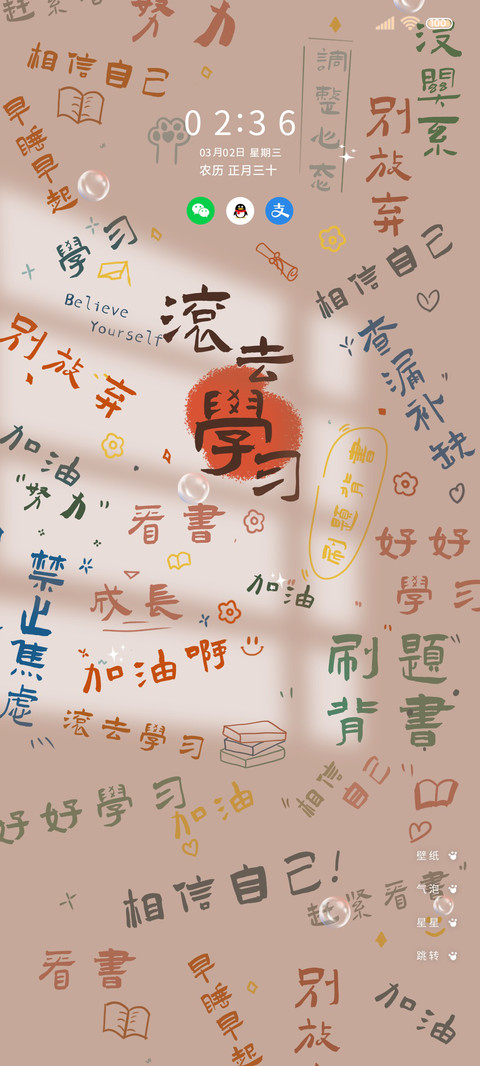 赶紧看書
努力
100
没關系
相信自己
調整心态
别放弃
早睡早起
02:36
03月02日 星期三
农历 正月三十
支
學习
相信自己
Believe
Yourself
滚去學习
别放弃
查漏补缺
加油
"努力"
刷題背書
看書
好好
學习
禁止焦虑
成長
加油
加油啊
刷題
背書
滚去學习
好好學习
加油
"相信自己"
壁纸
相信自己!
气泡
赶紧看書"
星星
跳转
看書
早睡早起
别放
加油